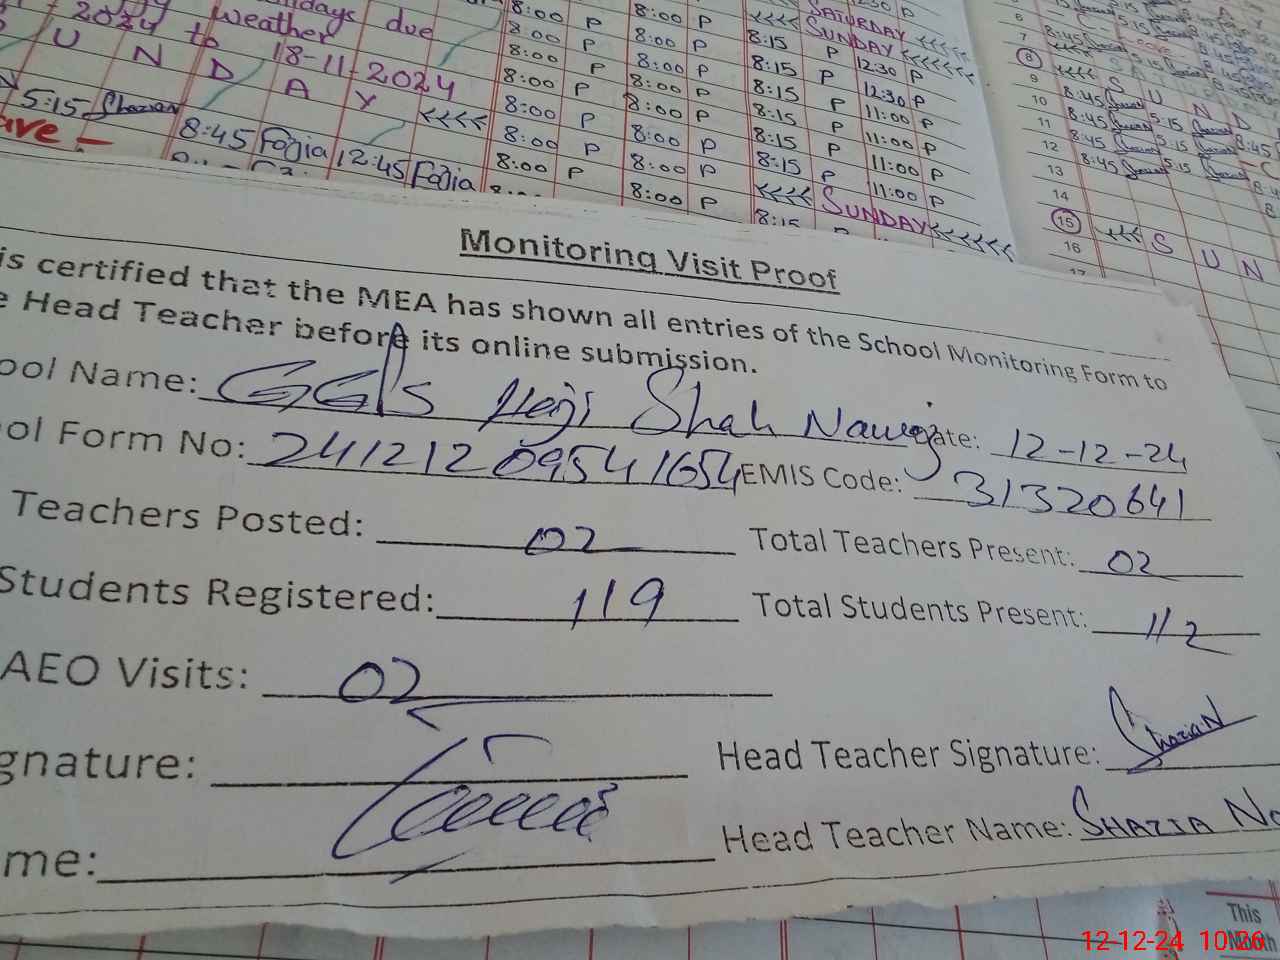 2024 Weather due
to 18-11-2024
U N D A Y <<<<
5:15 Shazian
8:45 Fojia 12:45 Fojia
8:00 P 8:00 P 8:15 P 12:30 P
8:00 P 8:00 P 8:15 P 12:30 P
8:00 P 8:00 P 8:15 P 11:00 P
8:00 P 8:00 P 8:15 P 11:00 P
8:00 P 8:00 P 8:15 P 11:00 P
8:00 P 8:00 P <<<< SUNDAY <<<<<<
SATURDAY <<<<
SUNDAY <<<<<<
8:15
6
7 8:45
8 <<<< S U N D
9 8:45 5:15
10 8:45 5:15 8:45
11 8:45 5:15
12 8:45 5:15
13
14
15 <<<< S U N
16
17
Monitoring Visit Proof
is certified that the MEA has shown all entries of the School Monitoring Form to
Head Teacher before its online submission.
ool Name: GGPS Haji Shah Nawaz Date: 12-12-24
ol Form No: 241212095441654 EMIS Code: 31320641
Teachers Posted: 02 Total Teachers Present: 02
Students Registered: 119 Total Students Present: 112
AEO Visits: 02
gnature: Head Teacher Signature: Shazia N
me: Head Teacher Name: SHAZIA Na
This
Month
12-12-24 10:26